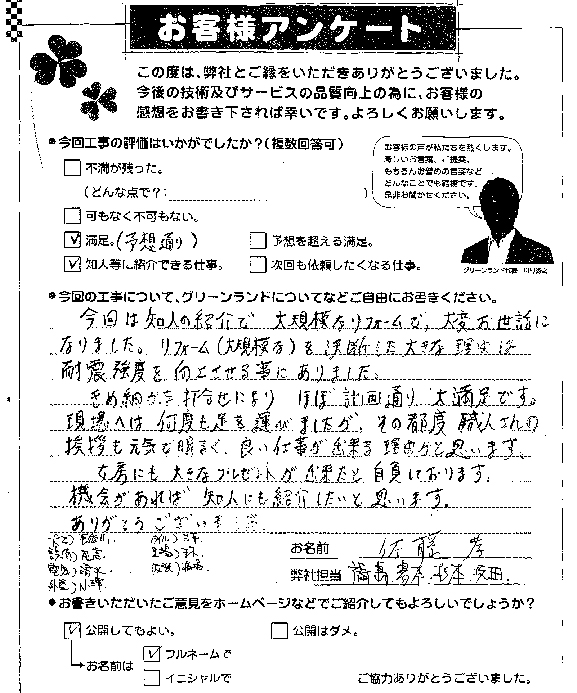 お客様アンケート
この度は、弊社とご縁をいただきありがとうございました。
今後の技術及びサービスの品質向上の為に、お客様の
感想をお書き下されば幸いです。よろしくお願いします。
●今回工事の評価はいかがでしたか？(複数回答可)
不満が残った。
(どんな点で？: )
可もなく不可もない。
満足。(予想通り)
予想を超える満足。
知人等に紹介できる仕事。
次回も依頼したくなる仕事。
お客様の声が私たちを熱くします。
もちろんお褒めの言葉など
どんなことでも結構です。
是非お聞かせください。
●今回の工事について、グリーンランドについてなどご自由にお書きください。
今回は知人の紹介で 大規模なリフォームで、大変お世話に
なりました。リフォーム(大規模な)を決断した大きな理由は
耐震強度を向上させる事にありました。
きめ細かな打合せにより ほぼ計画通り 大満足です。
現場へは何度も足を運びましたが、その都度 職人さんの
挨拶も元気で明るく、良い仕事が出来る理由かと思います。
女房にも大きなプレゼントが出来たと自負しております。
機会があれば 知人にも紹介したいと思います。
ありがとうございました
お名前 佐藤 孝
弊社担当
●お書きいただいたご意見をホームページなどでご紹介してもよろしいでしょうか？
公開してもよい。
公開はダメ。
お名前は
フルネームで
イニシャルで
ご協力ありがとうございました。